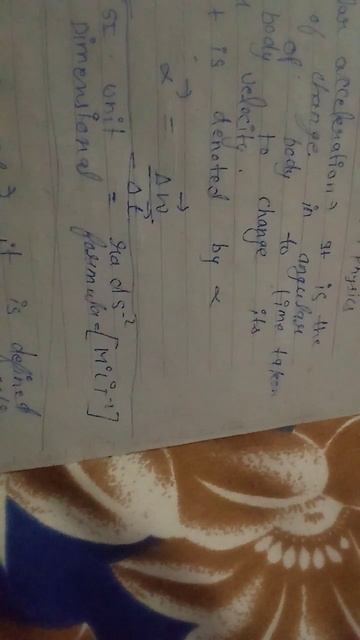 Physics
acceleration → It is the
of change in angular
of body to time taken
body to change its
velocity.
t is denoted by α
α⃗ = Δω⃗
Δt
SI unit = rad s⁻²
Dimensional formula = [M L T⁻²]
it is defined